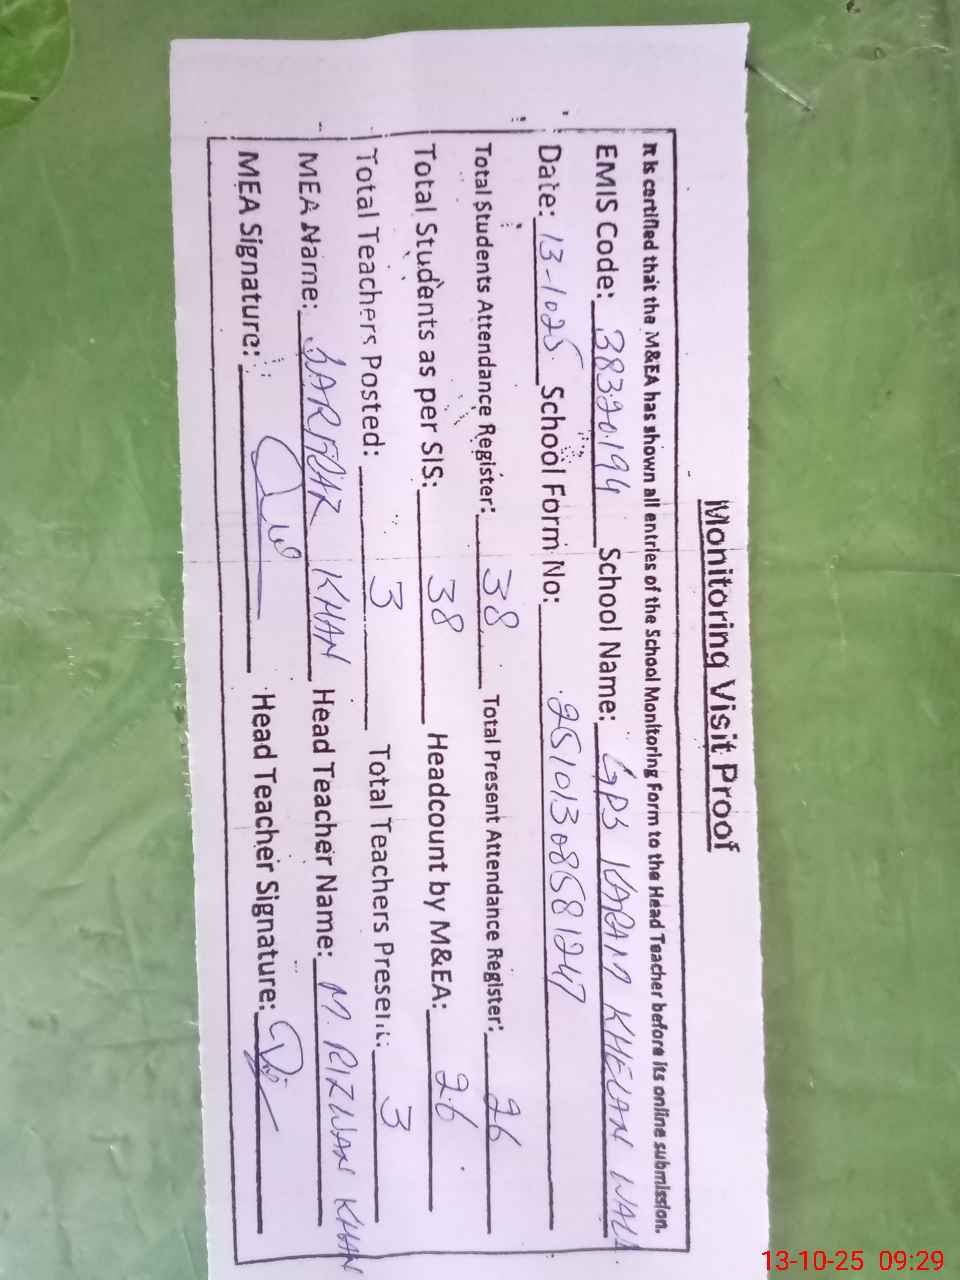 Monitoring Visit Proof
It is certified that the M&EA has shown all entries of the School Monitoring Form to the Head Teacher before its online submission.
EMIS Code: 38320194 School Name: GPS KARAM KHELAN WALA
Date: 13-1025 School Form No: 25101308581247
Total Students Attendance Register: 38 Total Present Attendance Register: 26
Total Students as per SIS: 38 Headcount by M&EA: 26
Total Teachers Posted: 3 Total Teachers Present: 3
MEA Name: KHAN Head Teacher Name: M. RIZWAN KHAN
MEA Signature: Head Teacher Signature:
13-10-25 09:29